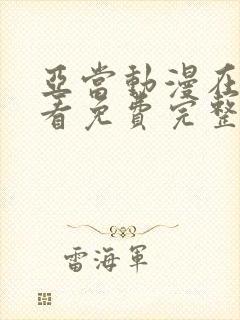 亞當動漫在
看免費完整
雷海軍